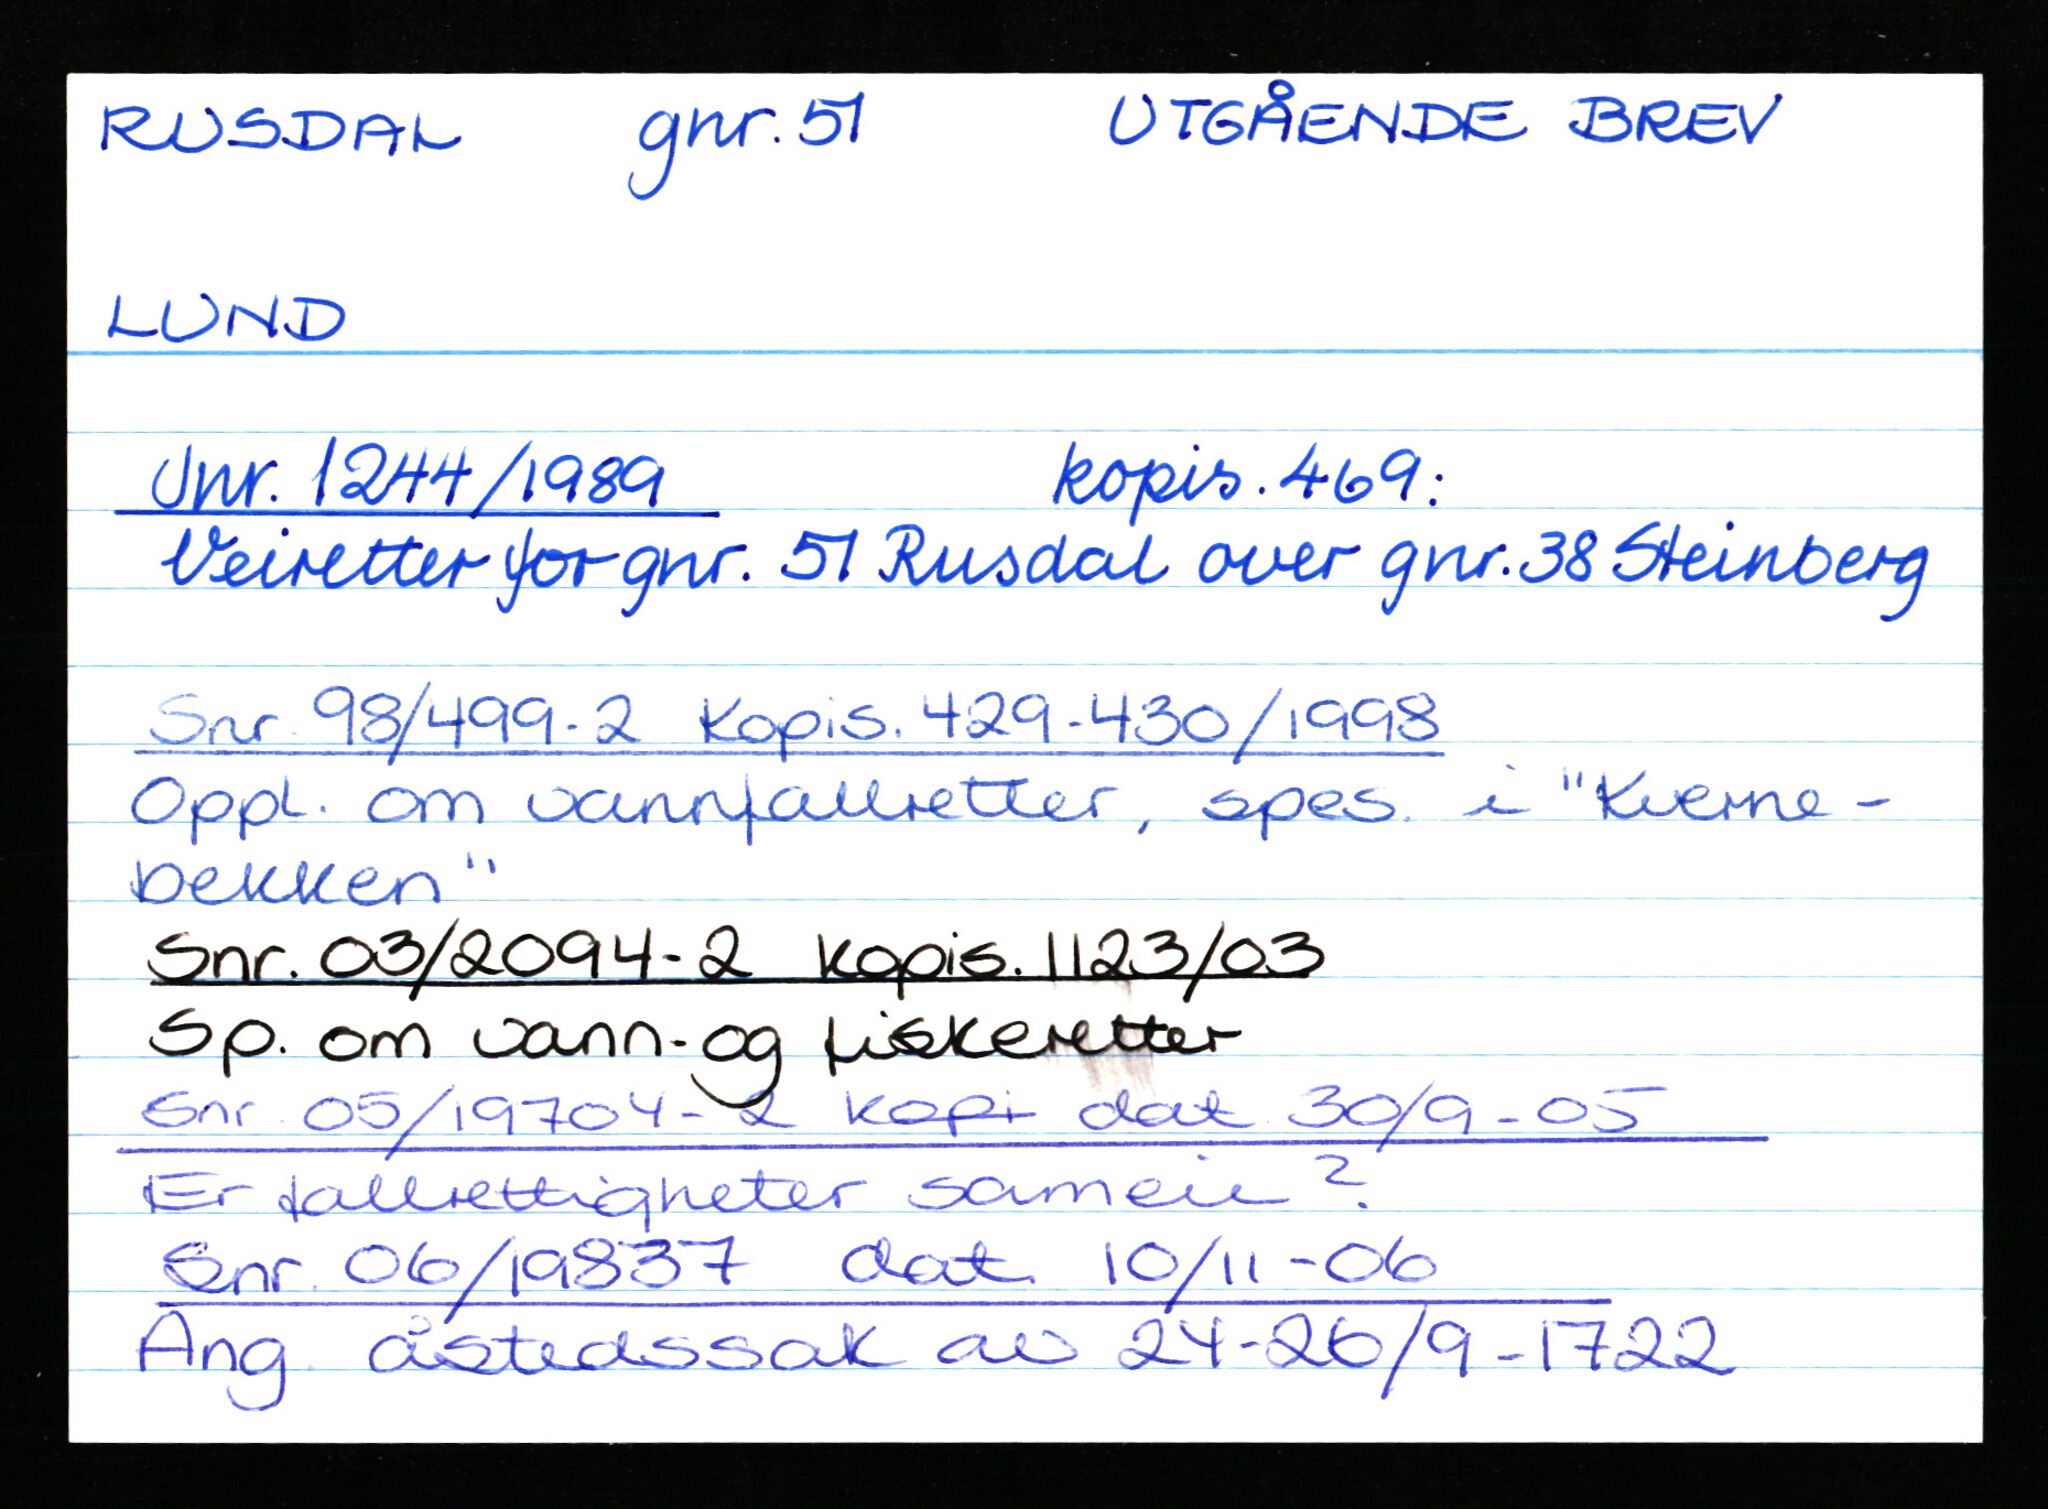 RUSDAL gnr. 51 UTGÅENDE BREV
LUND
Jnr. 1244/1989 kopis. 469:
Veiretter for gnr. 51 Rusdal over gnr. 38 Steinberg
Snr. 98/499-2 Kopis. 429-430/1998
Oppl. om vannfallretter, spes. i "Kverne-
bekken"
Snr. 03/2094-2 kopis. 1123/03
Sp. om vann- og fiskeretter
Snr. 05/19704-2 kopi dat 30/9-05
Er fallrettigheter sameie?
Snr. 06/19837 dat. 10/11-06
Ang. åstedssak av 24-26/9-1722